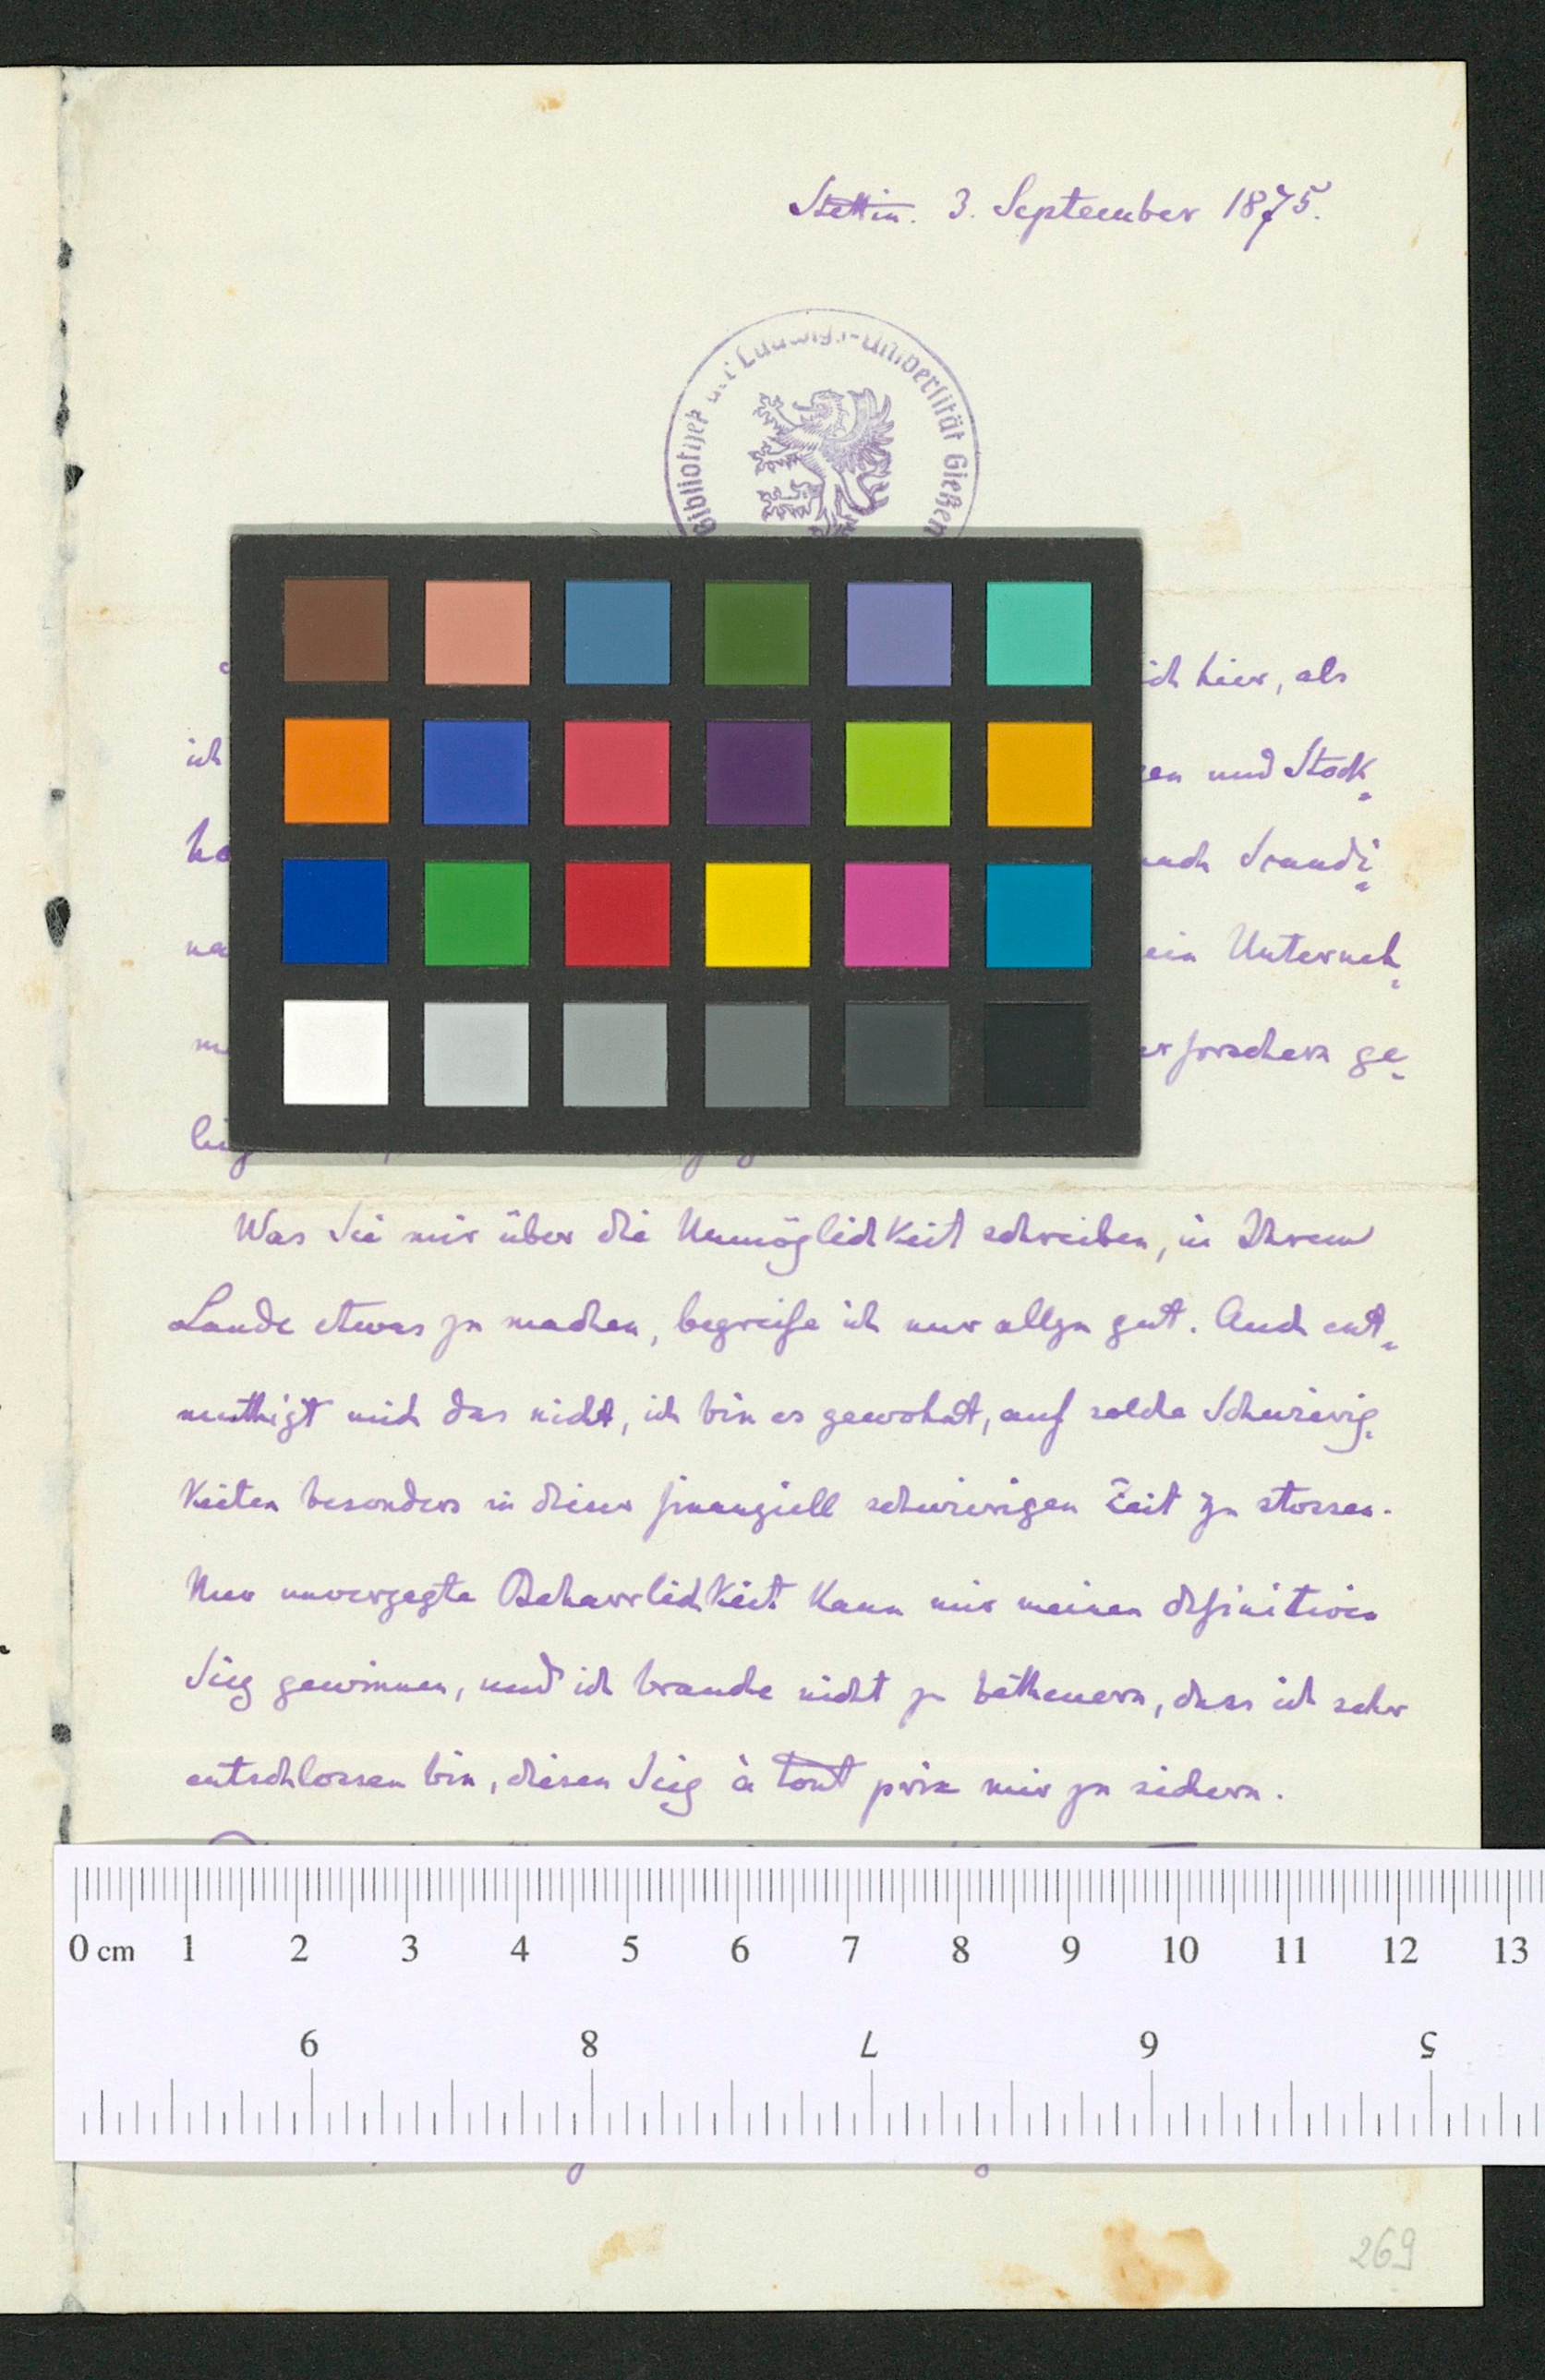 Stettin. 3. September 1875.
Bibliothek der Ludwigs-Universität Gießen
ich hier, als
ich
und Stock-
nach Scandi-
ein Unterneh-
ge-
Was Sie mir über die Unmöglichkeit schreiben, in Ihrem
Lande etwas zu machen, begreife ich nur allzu gut. Auch ent-
muthigt mich das nicht, ich bin es gewohnt, auf solche Schwierig-
keiten besonders in dieser finanziell schwierigen Zeit zu stossen.
Nur unverzagte Beharrlichkeit kann mir meinen definitiven
Sieg gewinnen, und ich brauche nicht zu betheuern, dass ich sehr
entschlossen bin, diesen Sieg à tout prix mir zu sichern.
0 cm 1 2 3 4 5 6 7 8 9 10 11 12 13
9 8 7 6 5
269